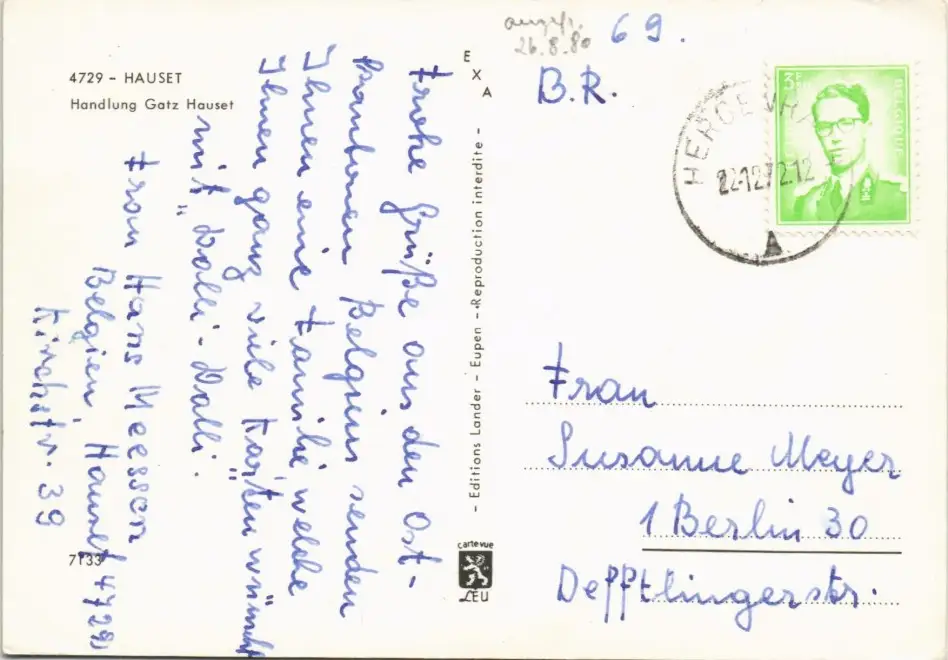 4729 - HAUSET
Handlung Gatz Hauset
Frohe Grüße aus den Ost-
kantonen Belgiens senden
Ihnen eine Familie, welche
Ihnen ganz viele Karten wünscht
mit "Dalli-Dalli.
Frau Hans Meessen
Belgien, Hauset 4729)
Kirchstr. 39
7133
E
X
A
- Editions Lander - Eupen - Reproduction interdite -
carte vue
LEU
26.8.80
69.
B.R.
3F
BELGIQUE
22-12
2.12
A
Frau
Susanne Meyer
1 Berlin 30
Defftlingerstr.